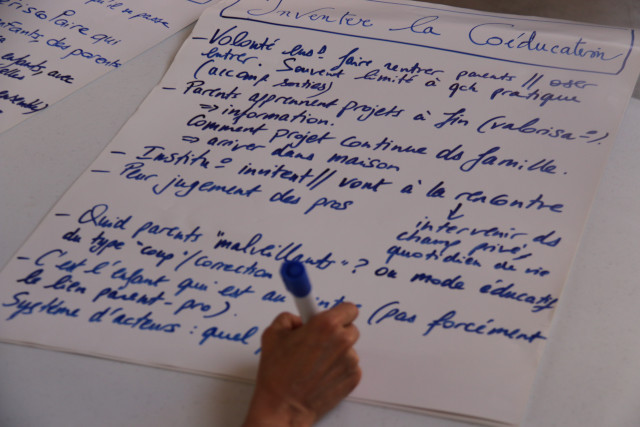 Inventer la Coéducation
- Volonté ens^t faire rentrer parents // oser
entrer. Souvent limité à qch pratique
(accomp sorties)
- Parents apprennent projets à fin (valorisa=°).
=> information.
Comment projet continue ds famille.
=> arriver dans maison
- Institu° invitent // vont à la rencontre
↓
intervenir ds
champ privé,
quotidien de vie
- Peur jugement des pros
- Quid parents "malveillants"? ou mode éducatif
du type "coup"/correction
- C'est l'enfant qui est au (pas forcément
le lien parent-pro).
Système d'acteurs : quel
scolaire qui
enfants, des parents
enfants, avec